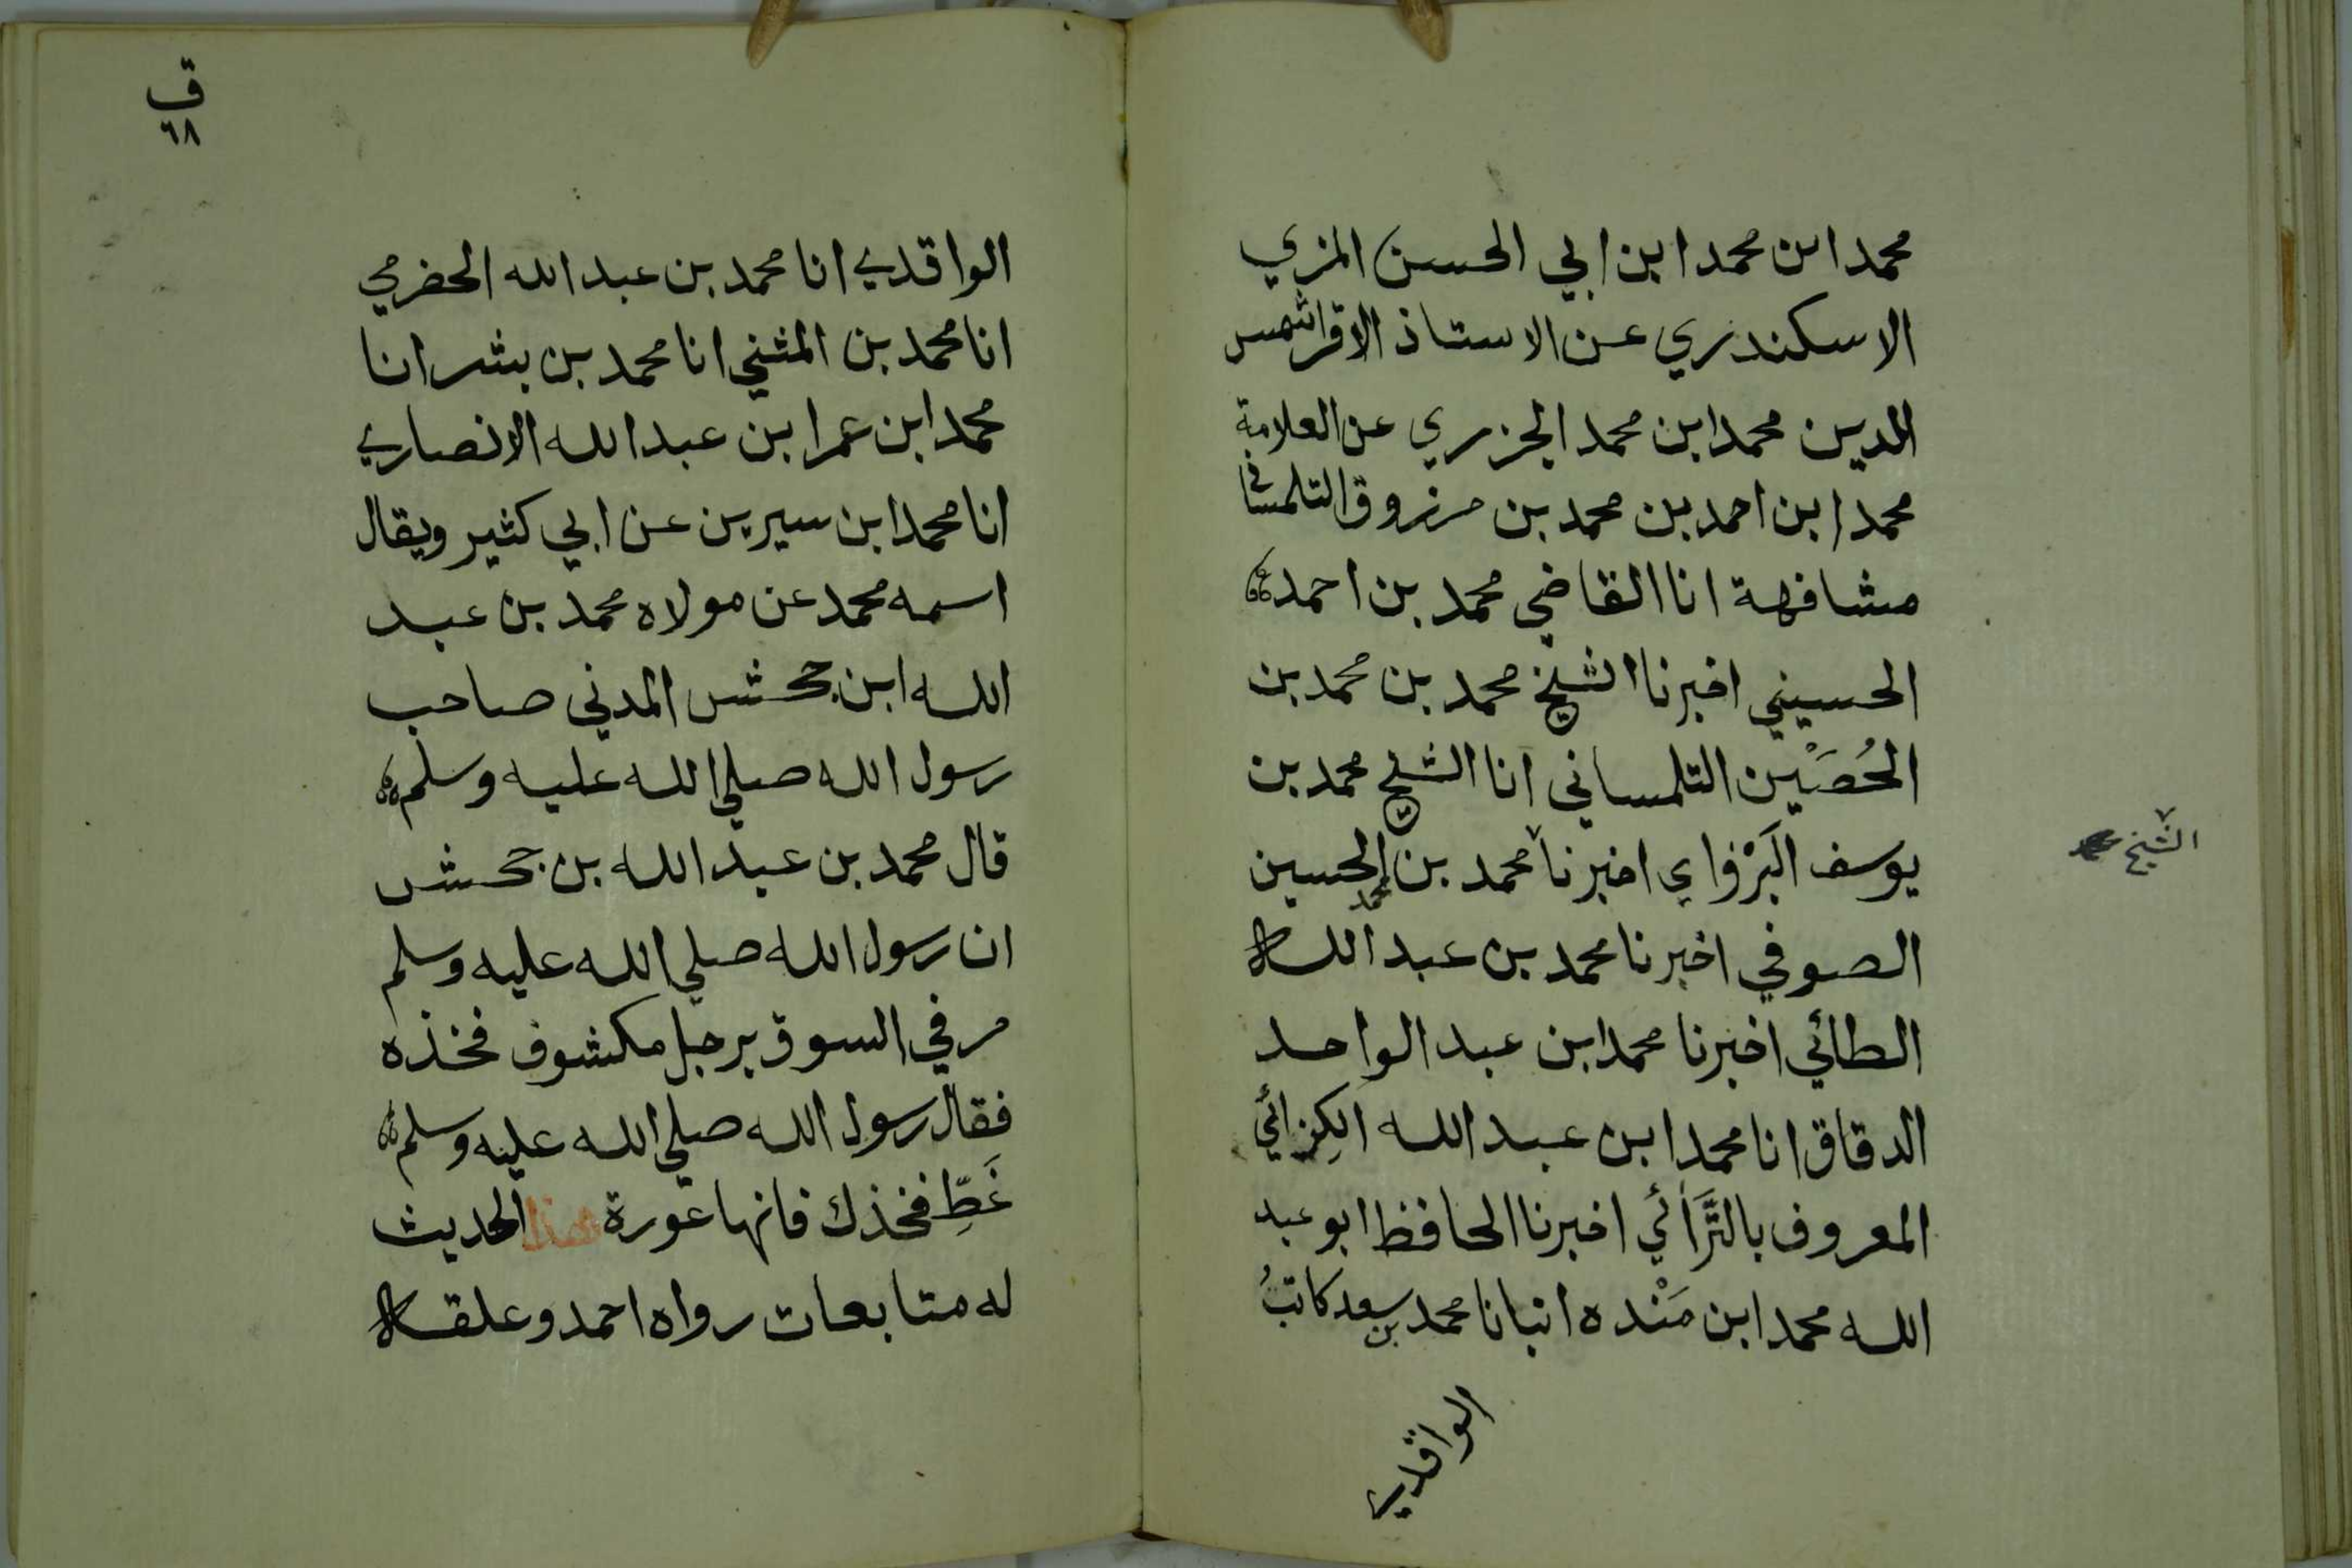 محمد ابن محمد ابن ابي الحسن المزي
الاسكندري عن الاستاذ الاقرا شمس
الدين محمد ابن محمد الجزري عن العلامة
محمد ابن احمد بن محمد بن مرزوق التلمسانى
مشافهة انا القاضي محمد بن احمد
الحسيني اخبرنا الشيخ محمد بن محمد بن
الحُصَيْن التلمساني انا الشيخ محمد بن
يوسف البَرْزوا ي اخبرنا محمد بن الحسين
الشيخ
محمد
الصوفي اخبرنا محمد بن عبد الله
الطائي اخبرنا محمد ابن عبد الواحد
الدقاق انا محمد ابن عبد الله الكِزائي
المعروف بالتَّرَائي اخبرنا الحافظ ابو عبد
الله محمد ابن مَنْده انبانا محمد بن سعد كاتبُ
الواقدي
ق
٦٨
الواقدي انا محمد بن عبد الله الحضرمي
انا محمد بن المثني انا محمد بن بشر انا
محمد ابن عمر ابن عبد الله الانصاري
انا محمد ابن سيرين عن ابي كثير ويقال
اسمه محمد عن مولاه محمد بن عبد
الله ابن جحش المدني صاحب
رسول الله صلي الله عليه وسلم
قال محمد بن عبد الله بن جحش
ان رسول الله صلي الله عليه وسلم
مر في السوق برجل مكشوف فخذه
فقال رسول الله صلي الله عليه وسلم
غَطِّ فخذك فانها عورة هذا الحديث
له متابعات رواه احمد وعلقه